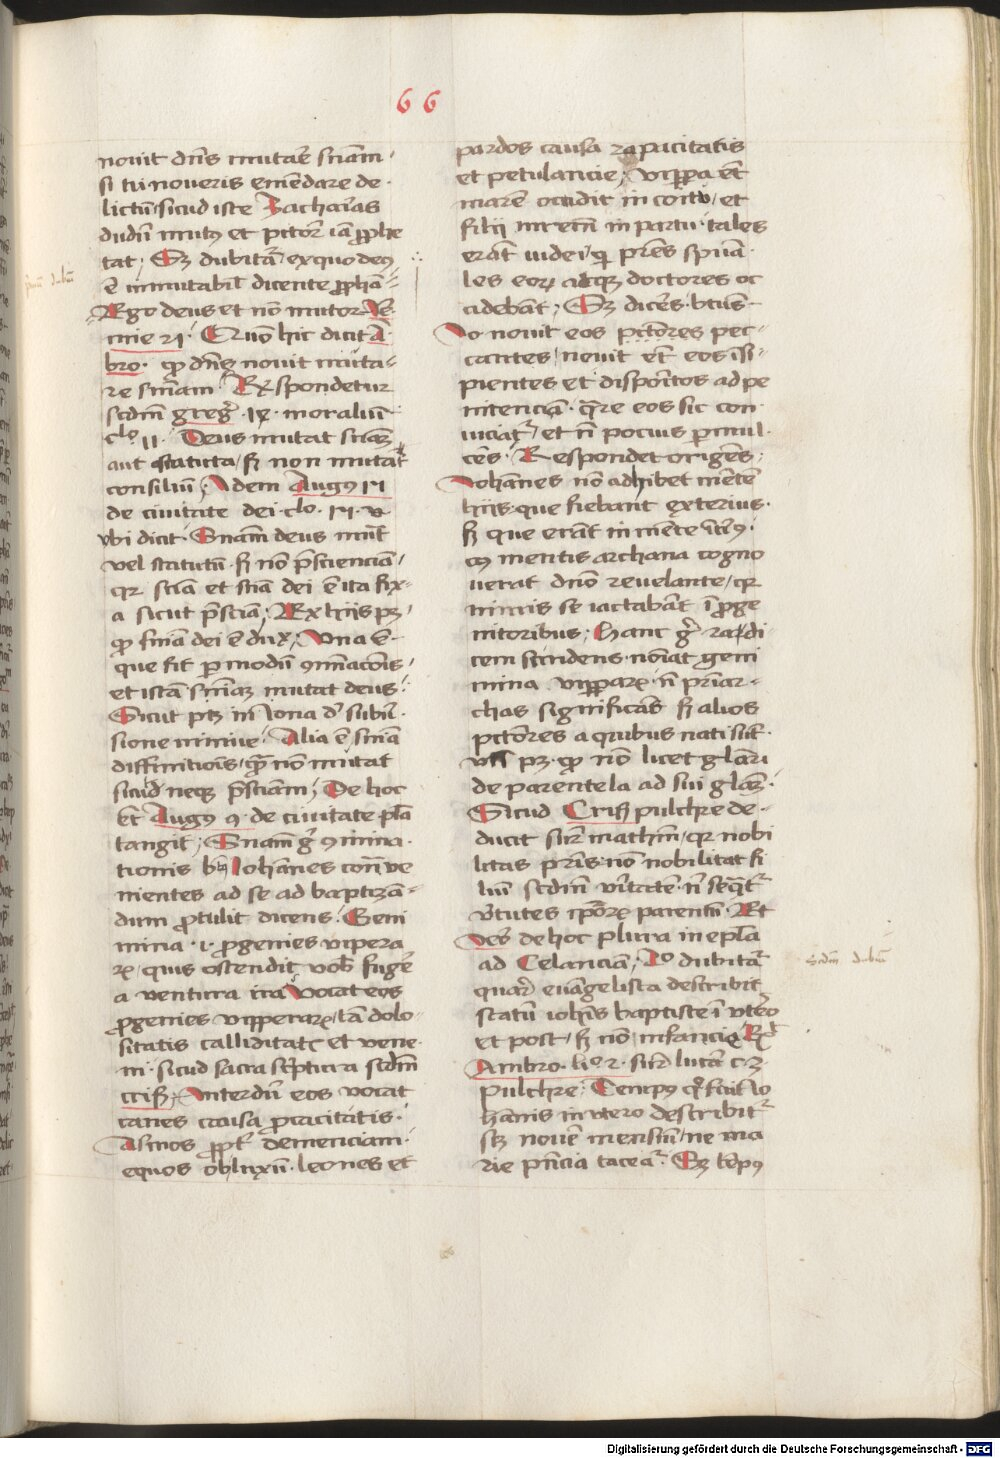 66
nouit dn̄s mutare sn̄iam ·
si tu noueris emēdare de ·
lictū sicud iste Zacharias
dudū mut9 et pctōr iā ꝓphe
tat · Sꝫ dubitat̄ ex quo deus
ē inmutabil̄ dicente ꝓphā
Ego deus et nō mutor
mie 21 · Quō hic dicit A
bro · ꝙ dn̄s nouit muta-
re sn̄iam · Rx spondetur
scdm̄ greḡ · ix · moraliū
clo 11 · Deus mutat sn̄iaꝫ
aut statuta / sꝫ non mutat
consiliū · Idem Aug9
de ciuitate dei · clo ·
vbi dicit · Sn̄iam deus mut̄
vel statutū · sꝫ nō p̄scienciā /
qr sciā et sn̄ia dei ē ita fix-
a sicut p̄sciā · Ex hijs pꝫ /
ꝙ sn̄ia dei ē dux · Vna ē ·
que fit ꝑ modū 9minac̄ōis /
et istā sn̄iaꝫ mutat deus ·
Sicut ptꝫ in iona d' subuer-
sione niniue · Alia ē sn̄ia
diffinitiōis / quā nō mutat
sicud neqꝫ p̄sciam · De hoc
ēt Aug9 9 · de ciuitate plā
tangit · Sn̄iam gͥ 9mina ·
tionis bt̄ iohannes con̄ ve
nientes ad se ad baptizā-
dum ꝓtulit dicens · Geni
mina · i · ꝓgenies vipera
rꝫ / quis ostendit vob̄ fugēr
a ventura irā Vocat eos
ꝓgenies viꝑerarꝫ / tā dolo-
sitatis calliditate et vene
ni · sicud sacra sc̄ptura scdm̄
crisꝫ · Interdū eos vocat
canes causa ꝓcacitatis ·
Asinos ꝓpt̄ demenciam ·
equos ob luxū · leones et
pardos causa rapacitatis
et petulancie · viꝑa ēt
marē occidit in coitu / et
filij mr̄em̄ in partu · tales
erāt iudei / qr pr̄es spūa
les eorꝫ atqꝫ doctores oc
cidebāt · Sꝫ dices · btūs
Io nouit eos pctōres pec-
cantes / nouit ēt eos isi-
pientes et dispōitos ad pe
nitenciā · qr̄e eos sic con
uiciat̄ / et n̄ pocius ꝑmul ·
cēs · Respondet origēs ·
Iohānes nō adhibet mētē
hijs · que fiebant exterius ·
sꝫ que erāt in mēte
9 mentis archana cogno
uerat dn̄o reuelante / qr
nimis se iactabāt ī ꝓge
nitoribus · hanc gͥ radi
cem scindens · noīat geni
mina viꝑarꝫ · n̄ pr̄iar-
chas significās sꝫ alios
pctōres a quibus nati sūt ·
pꝫ · ꝙ nō licet glāri
de parentela ad sui glaꝫ ·
Sicud Crisꝫ pulchre de ·
ducit suꝑ mathm̄ / qr nobi
litas pr̄is nō nobilitat fi
liū scdm̄ v̄itatē · n̄ seqͣt̄
v̄tutes ip̄orꝫ parentū · Et
de hoc plura in ep̄la
ad Celanciā · Io dubitat̄
quar̄ euāgelista describit
statū ioh̄is baptiste ī vtēo
et post / sꝫ nō infancie Rx
Ambro · li · 2 · suꝑ lucā c · 3
pulchre · Temp9 Io
hānis in vtero describit̄
sꝫ nouē mensiū / ne ma
rie p̄ncia taceat̄ · Sꝫ tēp9
Digitalisierung gefördert durch die Deutsche Forschungsgemeinschaft - DFG